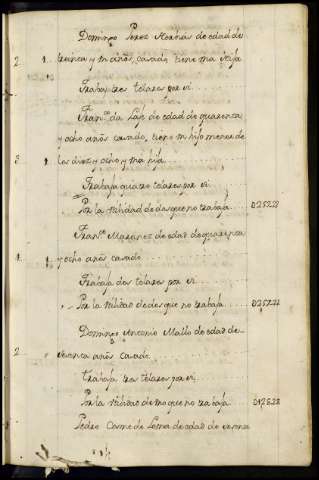 Domingo Perez Arenas de edad de
2 1 treinta y un años, casado, tiene una hija
Trabaja tres telares por si
Fran.co de Lois de edad de quarenta
y ocho años casado, tiene un hijo menor de
3 1 los diez y ocho y una hija
Trabaja quatro telares por si
Por la utilidad de dos que no trabaja
Fran.co de edad de quarenta
1 1 y ocho años casado
Trabaja dos telares por si
Por la utilidad de dos que no trabaja
Domingo Antonio Mallo de edad de
2 treinta años casado
Trabaja tres telares por si
Por la utilidad de uno que no trabaja
Pedro Cosme de Lema de edad de